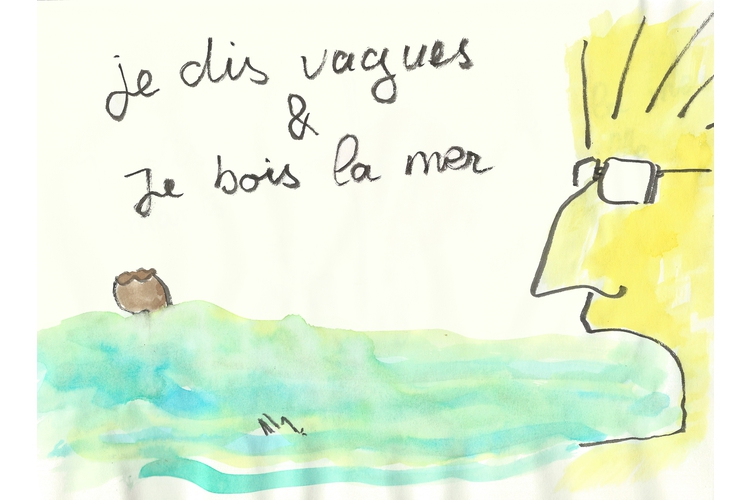 je dis vagues
&
Je bois la mer